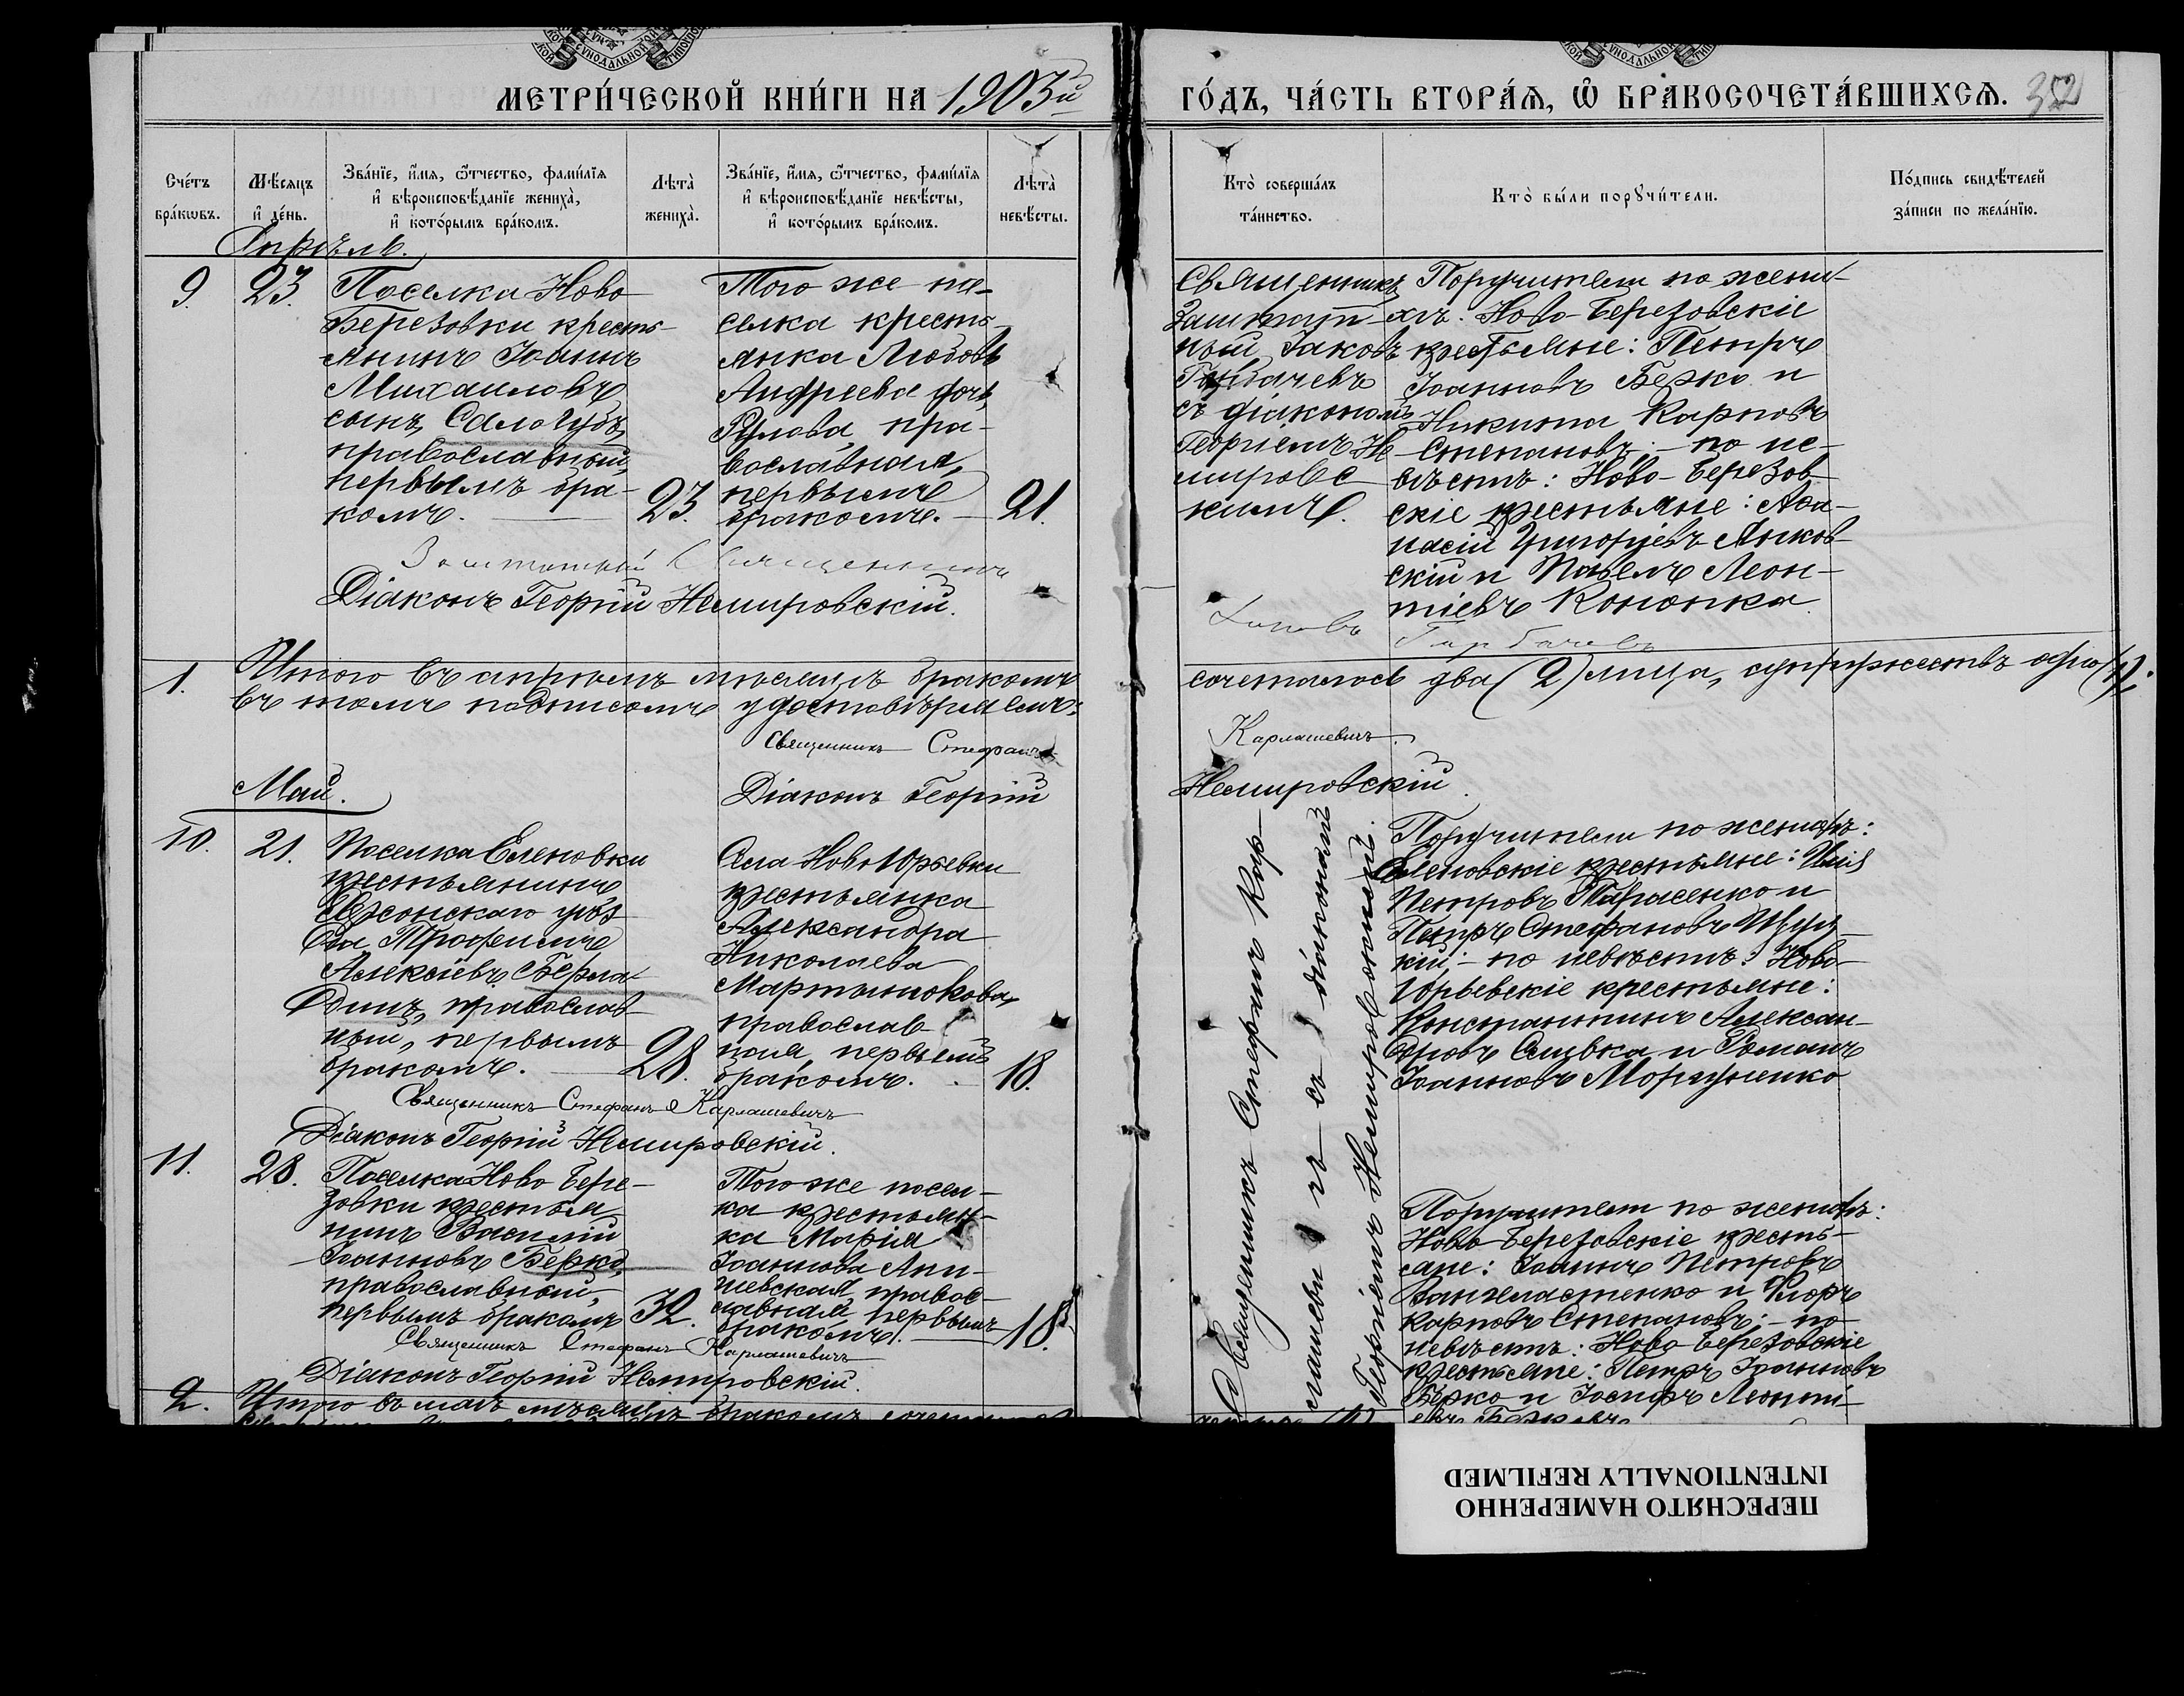 МЕТРИ́ЧЕСКОЙ КНИ́ГИ НА 1903й
ГО́ДЪ, ЧА́СТЬ ВТОРА́Я, Ѡ БРАКОСОЧЕТА́ВШИХСЯ. 352
Сче́тъ бра́кѡвъ.
Мѣ́сяцъ и де́нь.
Зва́нїе, и́мя, ѻ́тчество, фами́лїя и вѣроисповѣ́данїе жениха̀, и кото́рымъ бра́комъ.
Лѣ́та жениха̀.
Зва́нїе, и́мя, ѻ́тчество, фами́лїя и вѣроисповѣ́данїе невѣ́сты, и кото́рымъ бра́комъ.
Лѣ́та невѣ́сты.
Кто̀ соверша́лъ та́инство.
Кто̀ бы́ли порꙋчи́тели.
По́дпись свидѣ́телей за́писи по жела́нїю.
Апрѣль.
9. 23.
Поселка Ново
Березовки кресть-
янинъ Іоаннъ
Михаиловъ
сынъ Салогубъ,
православный,
первымъ бра-
комъ. 23.
Того же по-
селка кресть-
янка Любовь
Андреева дочь
православная,
первымъ
бракомъ. 21.
Священникъ
Заштат-
ный Іаковъ
Горбачевъ
съ діакономъ
Георгіемъ Не-
мировс
кимъ.
Поручители по жени-
хѣ: Ново-Березовскіе
крестьяне: Петръ
Іоанновъ Берко и
Никита Карповъ
Степановъ; - по не-
вѣстѣ: Ново-Березов-
скіе крестьяне: Афа-
насій Григорьевъ Янков-
скій и Павелъ Леон-
тіевъ Кононка.
Заштатный Священникъ
Іаковъ Горбачевъ
Діаконъ Георгій Немировскій.
1. Итого въ апрѣлѣ мѣсяцѣ бракомъ
сочеталось два (2) лица, супружествъ одно (1).
въ томъ подписомъ удостовѣряемъ:
Священникъ Стефанъ
Карлашевичъ.
Діаконъ Георгій
Немировскій.
Май.
10. 21.
Поселка Еленовки
крестьянинъ
Херсонскаго уѣз
да Трофимъ
Алексіевъ Берла-
динъ, православ-
ный, первымъ
бракомъ. 28.
Села Ново Юрьевки
крестьянка
Александра
Николаева
Мартынюкова,
православ
ная, первымъ
бракомъ. 18.
Поручители по женихѣ:
Еленовскіе крестьяне:
Петровъ Тарасенко и
Петръ Стефановъ
кій; - по невѣстѣ: Ново-
Юрьевскіе крестьяне:
Константинъ Александ
ровъ и Романъ
Іоанновъ
Священникъ Стефанъ Карлашевичъ
Діаконъ Георгій Немировскій.
Священникъ Стефанъ Кар-
лашевичъ съ діакономъ
Георгіемъ Немировскимъ.
11. 28.
Поселка Ново Бере-
зовки крестья
нинъ Василій
Іоанновъ Берко,
православный,
первымъ бракомъ 32.
Того же посел-
ка крестьян-
ка Марія
Іоаннова
правос-
лавная, первымъ
бракомъ. 18.
Поручители по женихѣ:
Ново Березовскіе кресть-
яне: Іоаннъ Петровъ
и
Карповъ Степановъ; - по
невѣстѣ: Ново Березовскіе
крестьяне: Петръ Іоанновъ
Берко и Іосифъ Леонті-
евъ
Священникъ Стефанъ Карлашевичъ
Діаконъ Георгій Немировскій.
2. Итого въ маѣ мѣсяцѣ бракомъ
INTENTIONALLY REFILMED
ПЕРЕСНЯТО НАМЕРЕННО